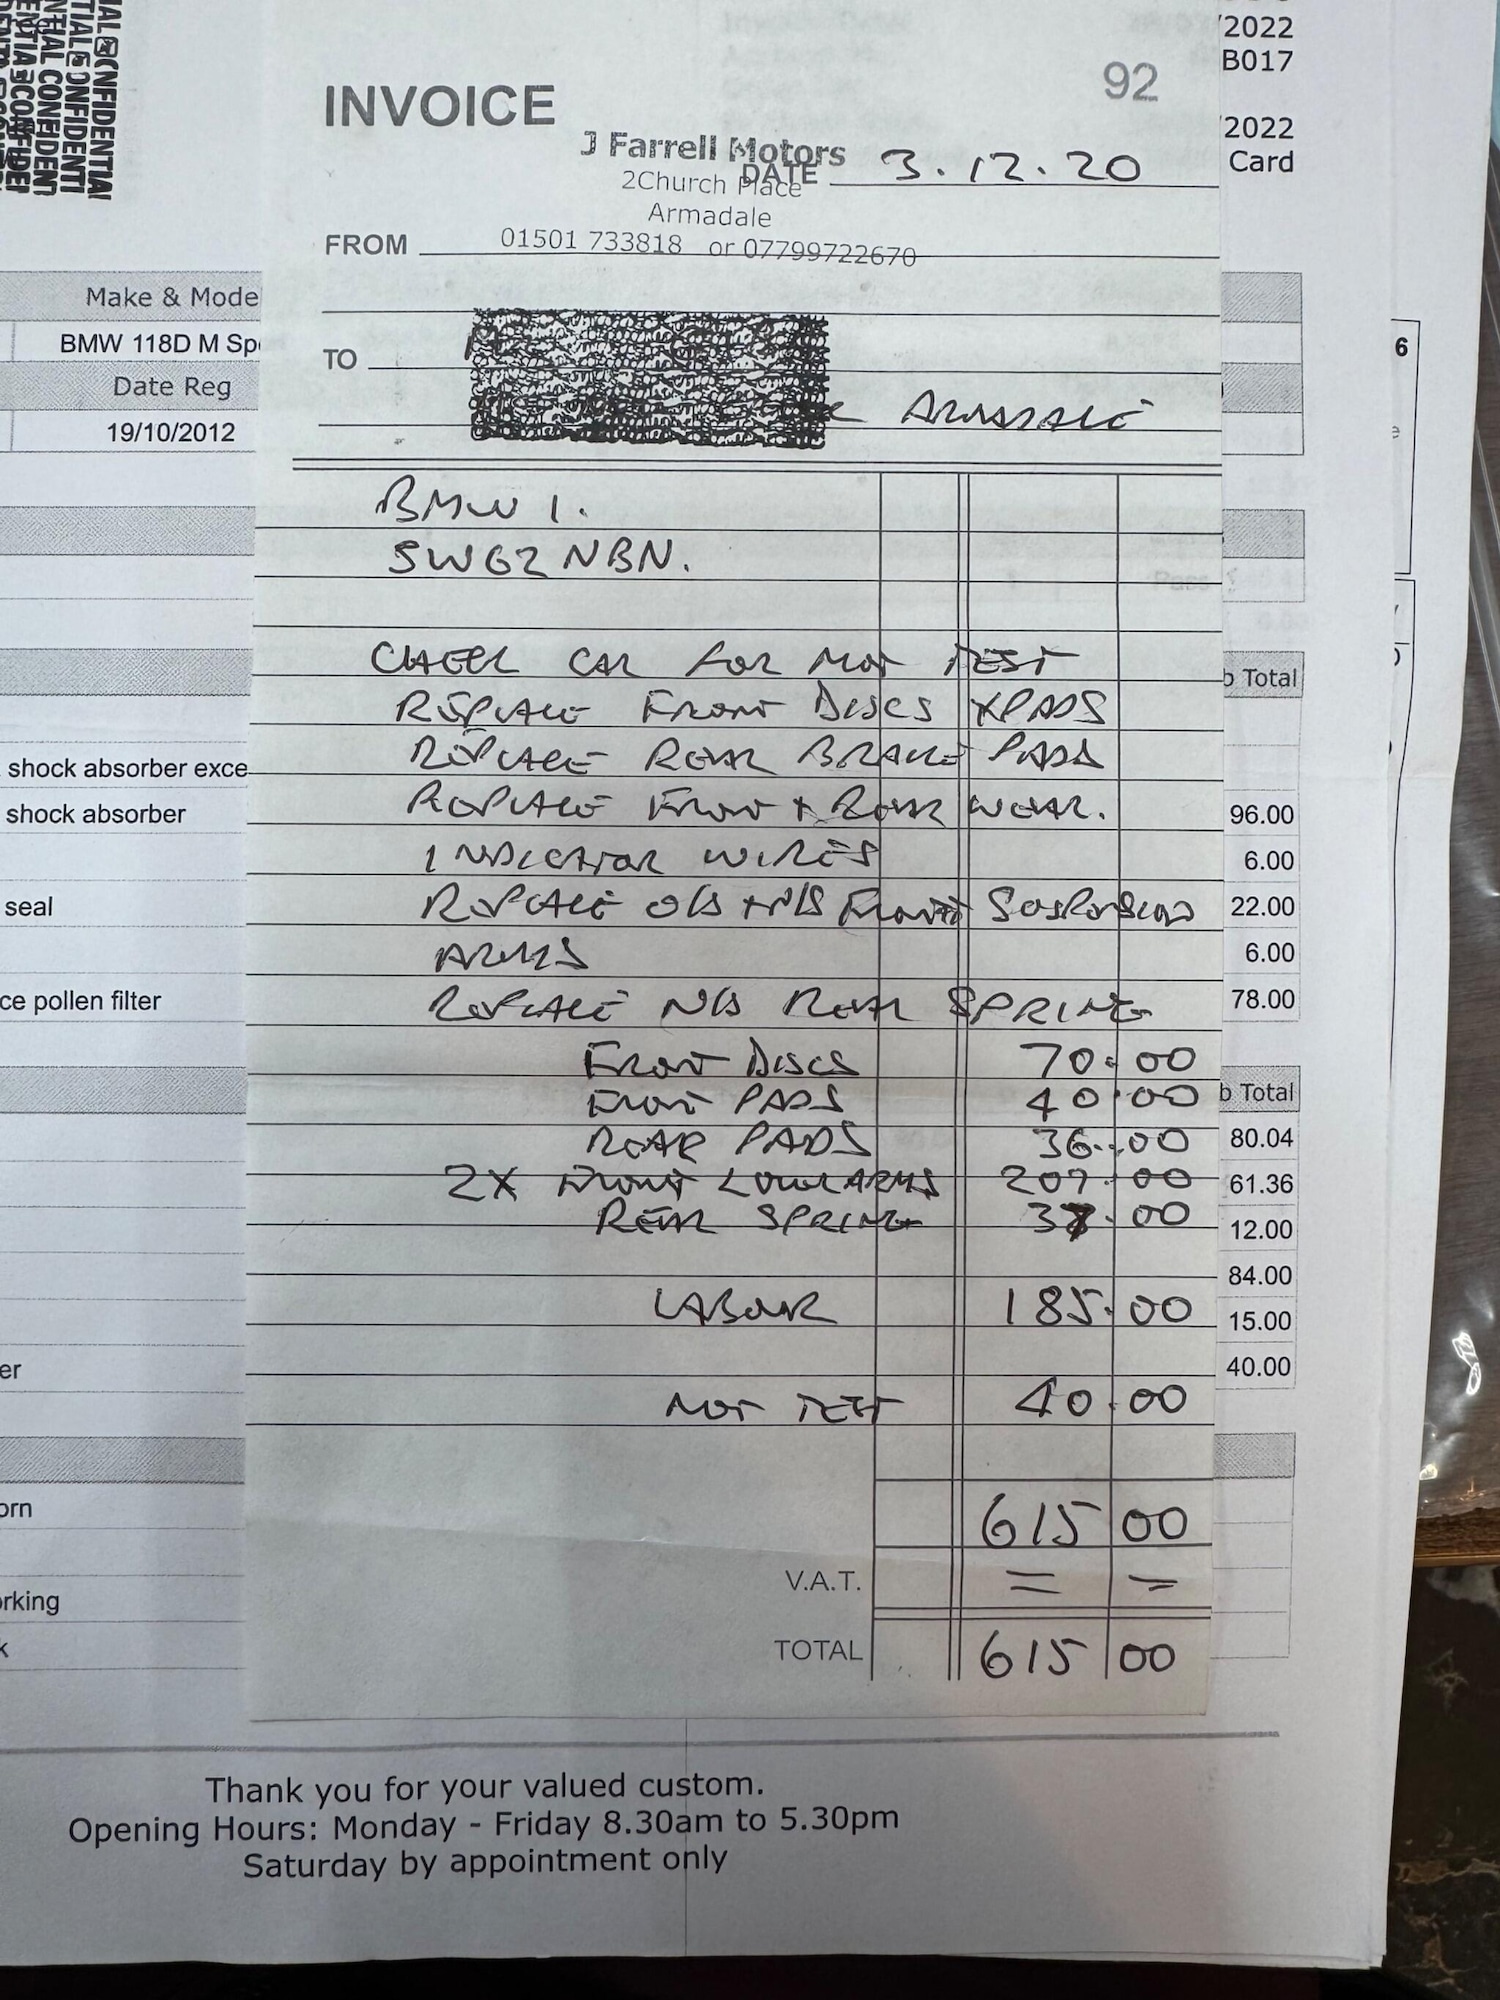 INVOICE
92
J Farrell Motors
DATE 3.12.20
2Church Place
Armadale
FROM 01501 733818 or 07799722670
TO
ARMADALE
BMW 1.
SW62NBN.
CHECK CAR FOR MOT TEST
REPLACE FRONT DISCS + PADS
REPLACE REAR BRAKE PADS
REPLACE FRONT + REAR WEAR.
INDICATOR WIRES
REPLACE O/S + N/S FRONT SUSPENSION
ARMS
REPLACE N/S REAR SPRING
FRONT DISCS 70.00
FRONT PADS 40.00
REAR PADS 36.00
2X FRONT LOWER ARMS 207.00
REAR SPRING 37.00
LABOUR 185.00
MOT TEST 40.00
615 00
V.A.T. = =
TOTAL 615 00
CONFIDENTIAL
/2022
B017
/2022
Card
Make & Mode
BMW 118D M Sp
Date Reg
19/10/2012
6
b Total
shock absorber exce
shock absorber 96.00
6.00
seal 22.00
6.00
ce pollen filter 78.00
b Total
80.04
61.36
12.00
84.00
15.00
er 40.00
orn
orking
k
Thank you for your valued custom.
Opening Hours: Monday - Friday 8.30am to 5.30pm
Saturday by appointment only